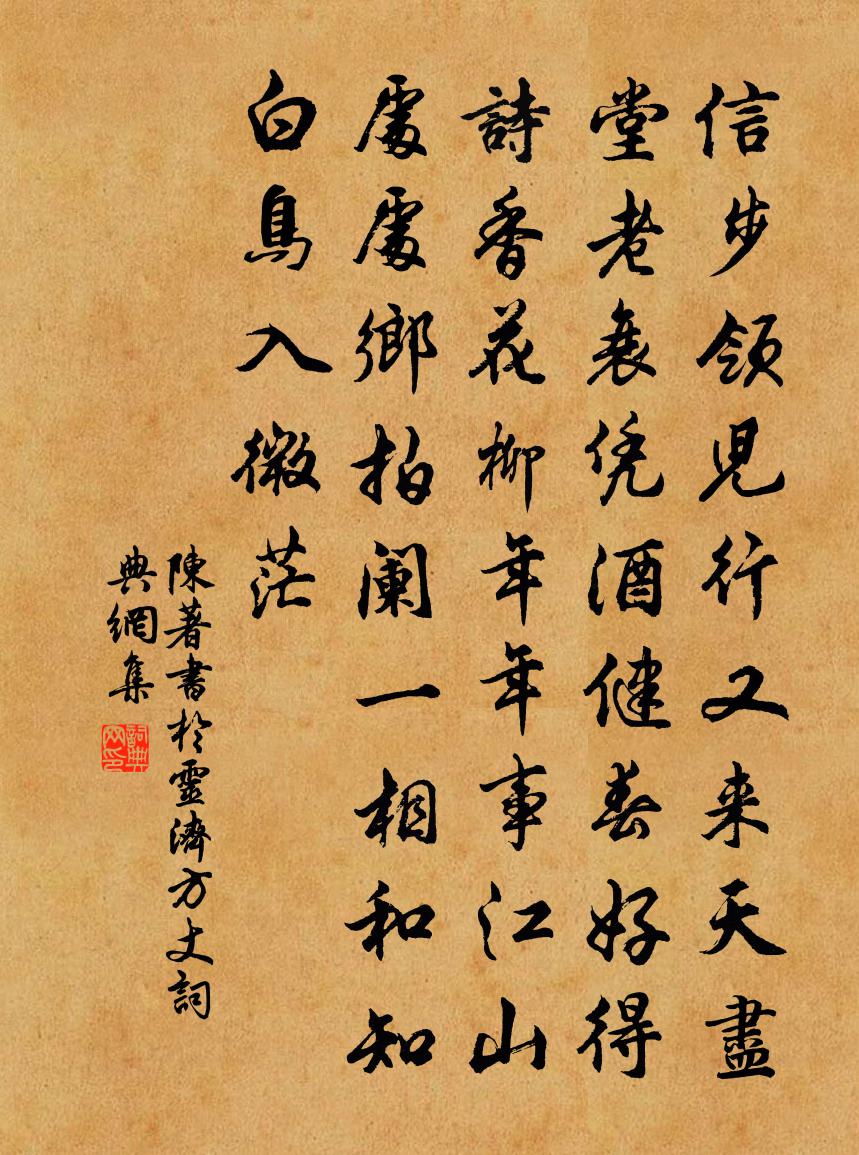 信步領兒行又来天盡
堂老衰凭酒健春好得
詩香花柳年年事江山
處處鄉拍阑一相和知
白鳥入微茫
陳著書於靈濟方丈詞
典網集
詞典
网印